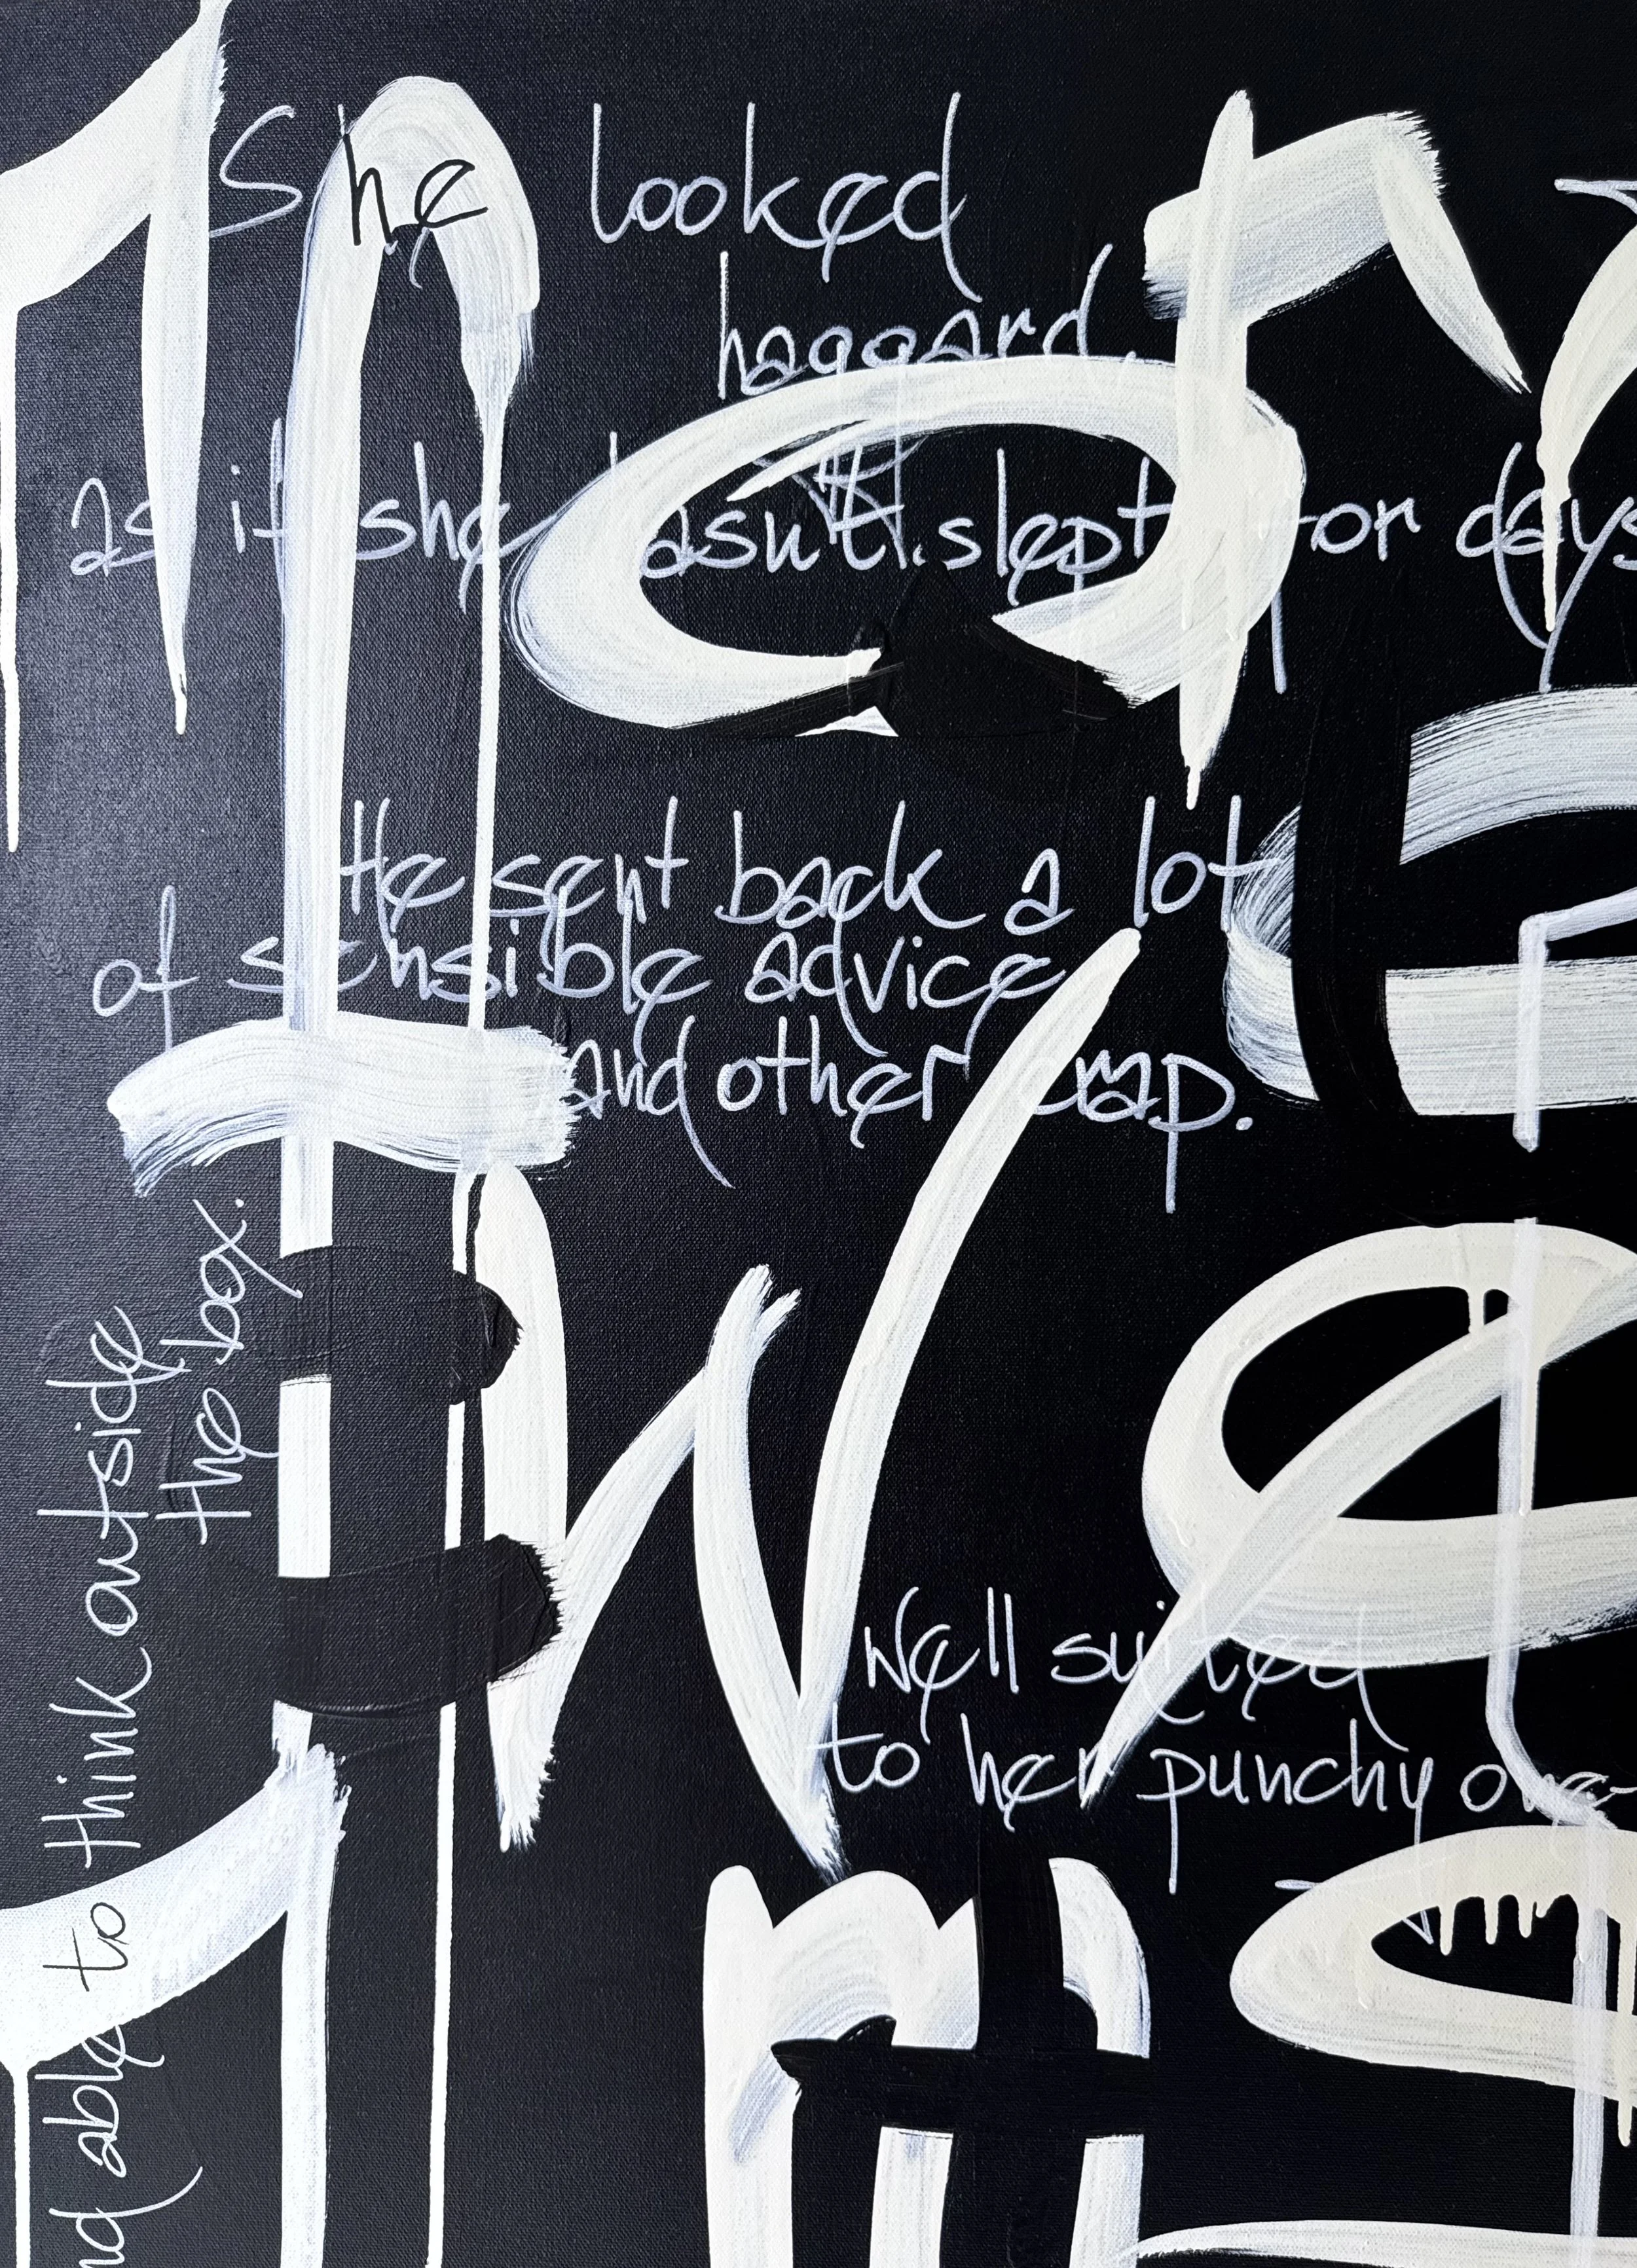 She looked
haggard,
as if she hasn't slept for days
He sent back a lot
of sensible advice
and other crap.
able to think outside
the box.
Well suited
to her punchy